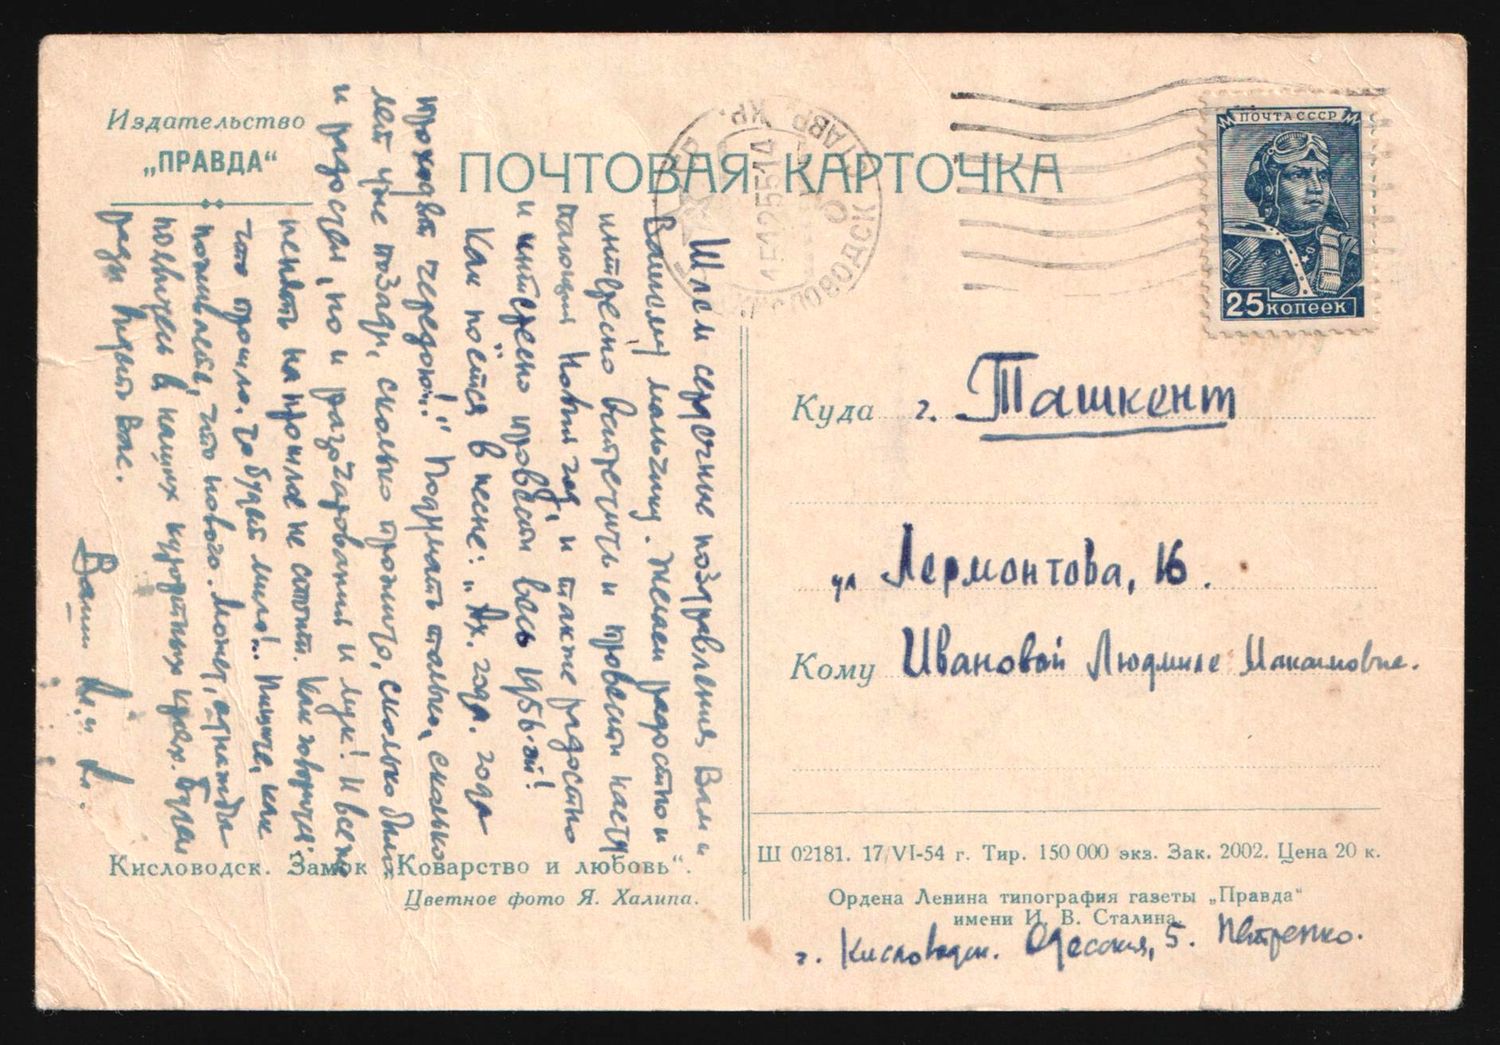 Издательство
„ПРАВДА“
ПОЧТОВАЯ КАРТОЧКА
ПОЧТА СССР
25 копеек
КИСЛОВОДСК СТАВР. КР.
15125514
Шлем сердечные поздравления Вам и
Вашему мальчику. Желаем радостно и
интересно встретить и провести насту
пающий Новый год, и также радостно
и интересно провести весь 1956-ой!
Как поётся в песне: „Ах. года. года
проходят чередой!“ Подумать только, сколько
лет уже позади, сколько прожито, сколько было
и радости, но и разочарования и мук! И все же
пенять на прошлое не стоит. Как говорится:
что прошло, то будет мило!.. Пишите, как
поживаете, что нового. Может, однажды
появитесь в наших курортных краях. Будем
рады видеть Вас.
Ваши
Кисловодск. Замок „Коварство и любовь“.
Цветное фото Я. Халипа.
Куда г. Ташкент
ул Лермонтова, 16.
Кому Ивановой Людмиле Максимовне.
Ш 02181. 17/VI-54 г. Тир. 150 000 экз. Зак. 2002. Цена 20 к.
Ордена Ленина типография газеты „Правда“
имени И. В. Сталина.
г. Кисловодск. Одесская, 5. Петренко.